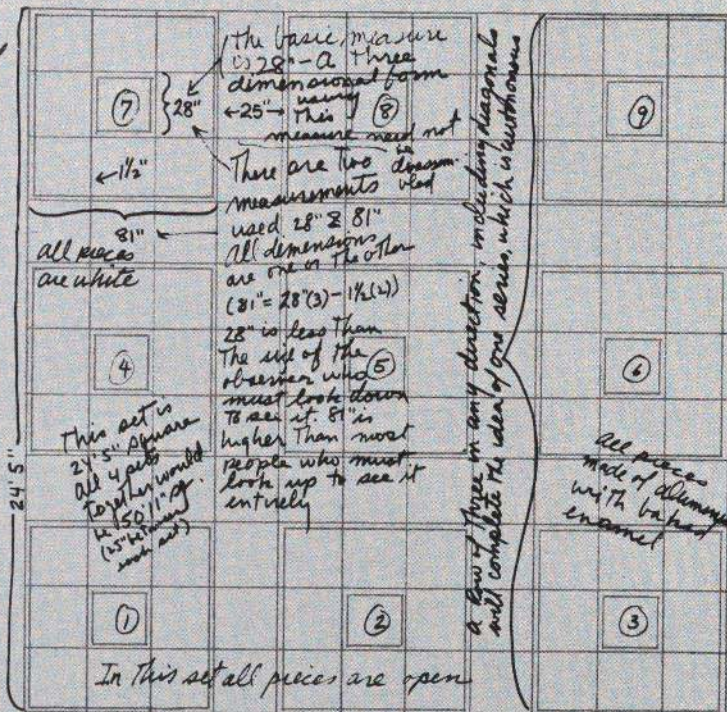 The basic measure
is 28" – A three
dimensional form
using
this
measure need not
be
disassem-
bled
7
28"
←25"→
8
9
←1½"
There are two
measurements
used 28" & 81"
all dimensions
are one or the other
(81" = 28"(3) – 1½(2))
28" is less than
the size of the
observer who
must look down
to see it. 81" is
higher than most
people who must
look up to see it
entirely
81"
all pieces
are white
4
5
6
This set is
24'5" square
all 4 sets
together would
be 50'11" sq.
(25" between
each set)
24'5"
a row of three in any direction, including diagonals
will complete the idea of one series, which is autonomous
all pieces
made of aluminum
with baked
enamel
1
2
3
In this set all pieces are open